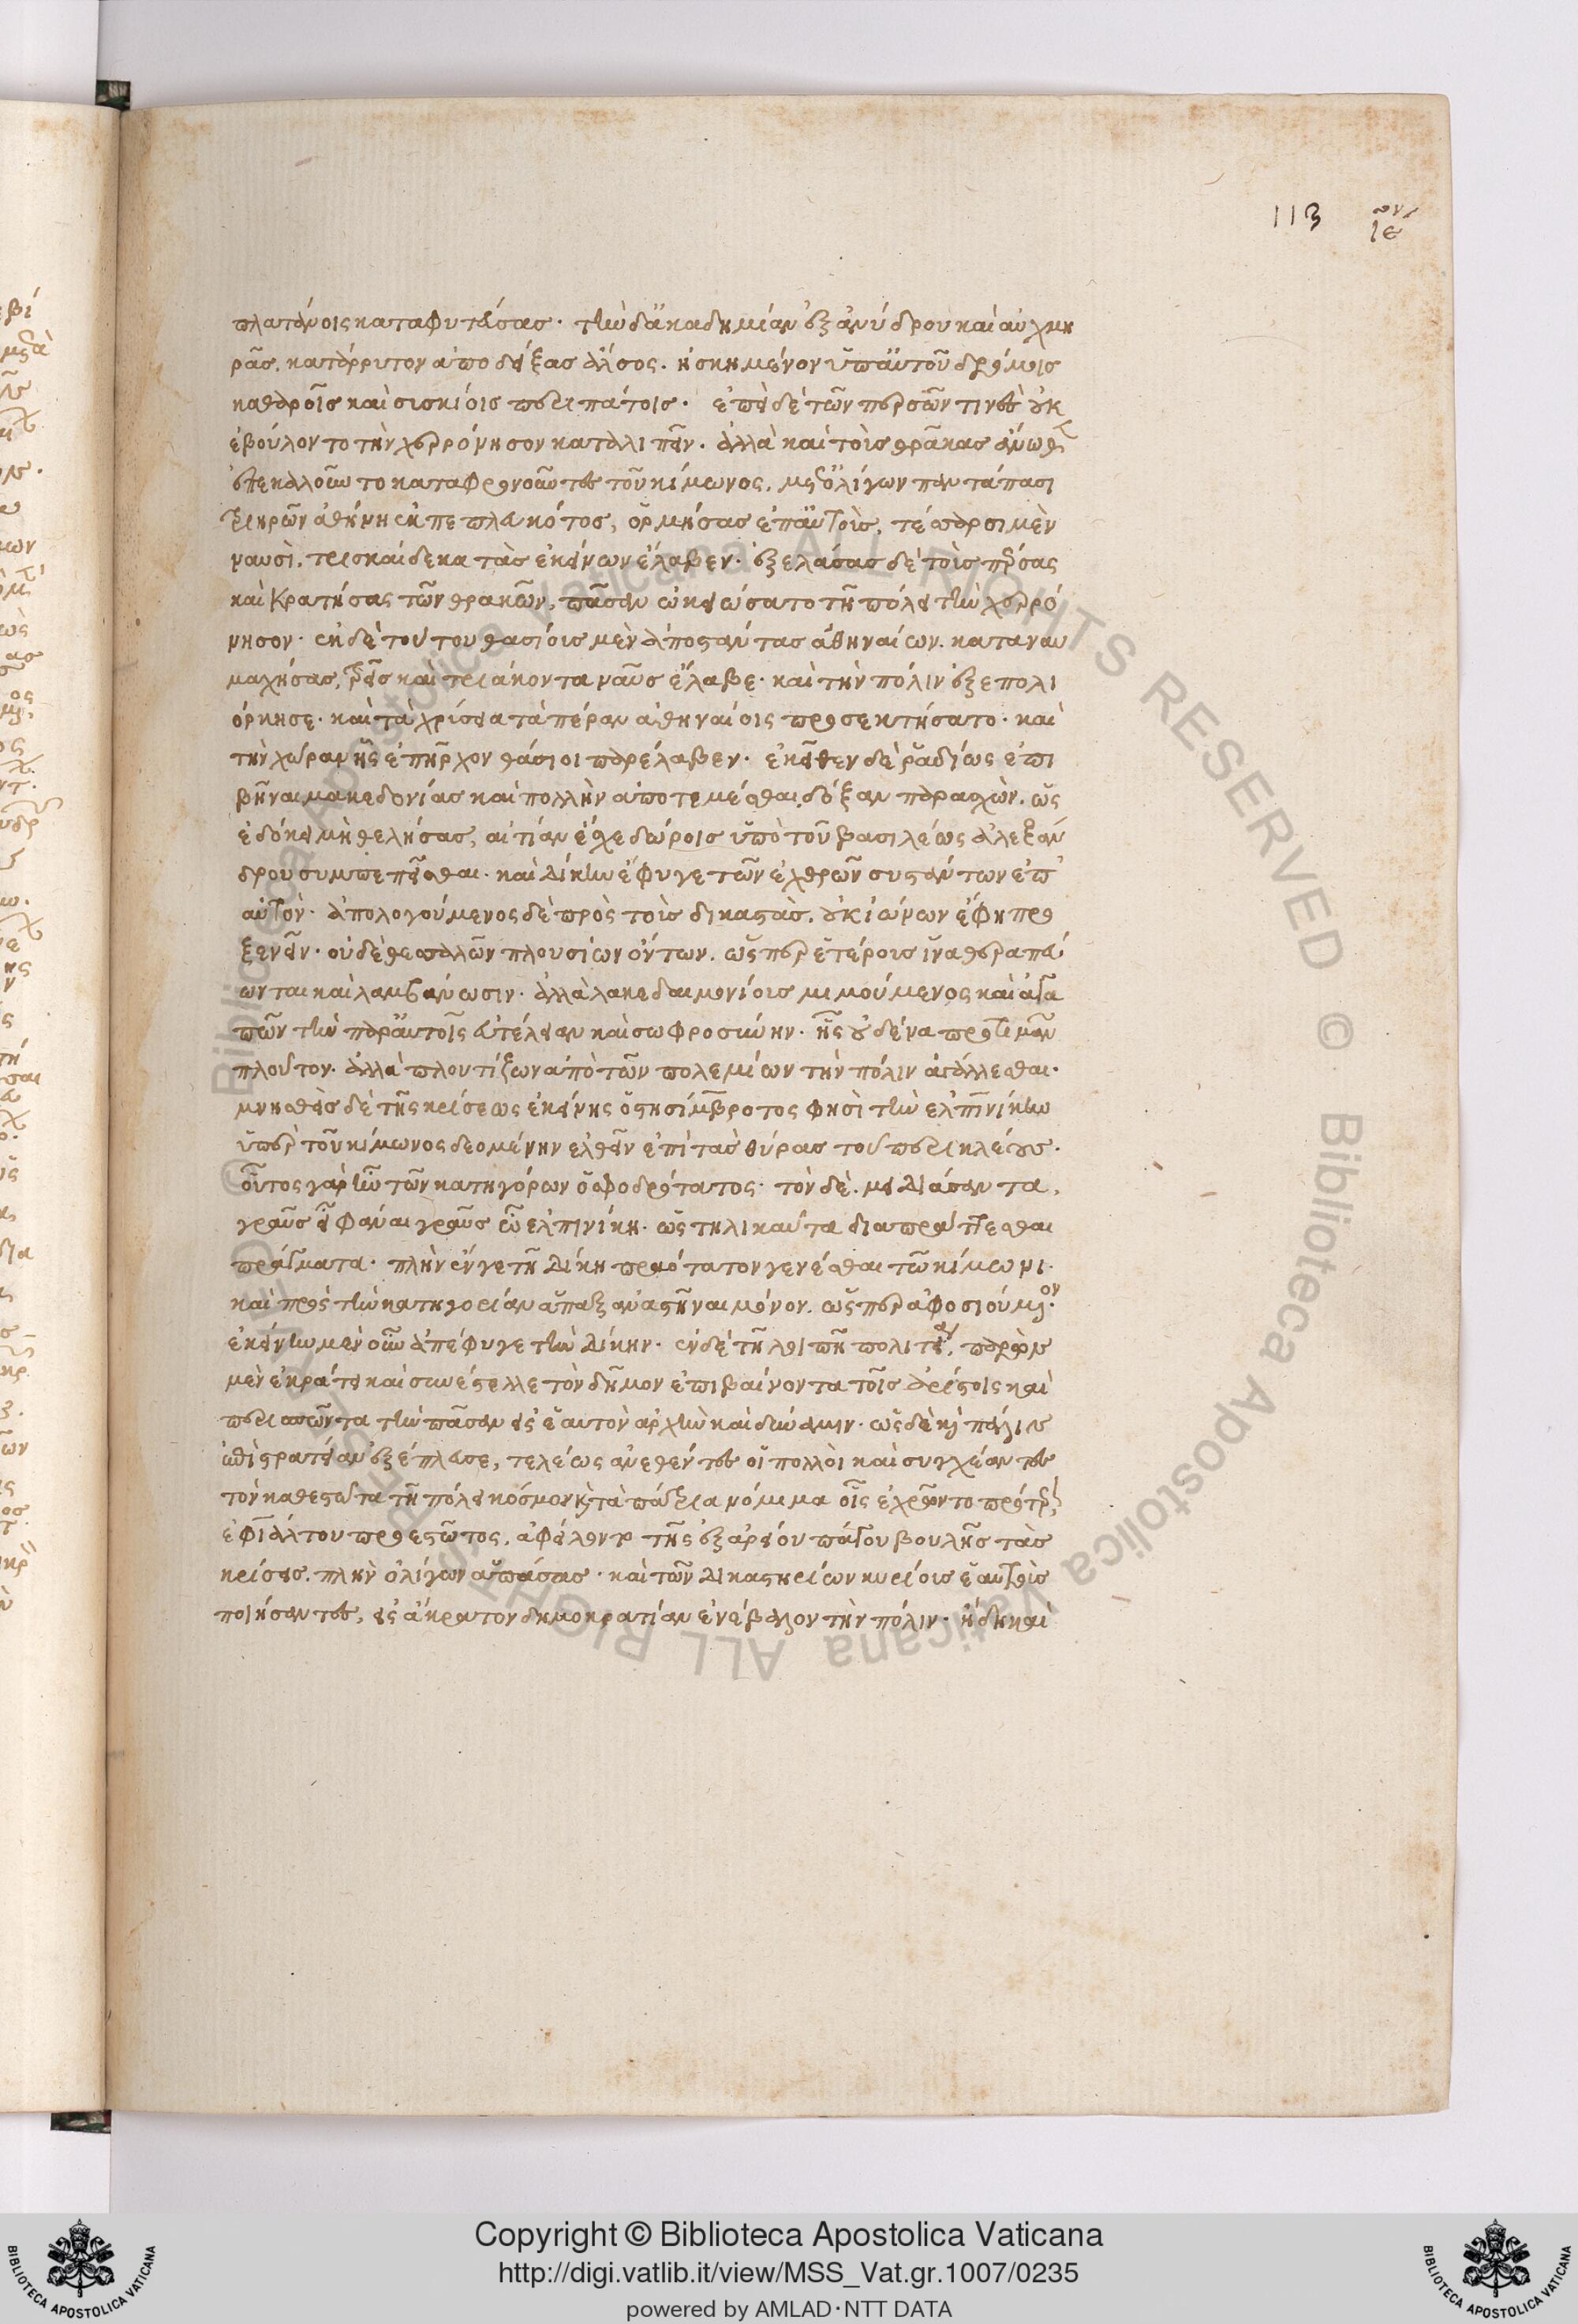 113
ιε
πλατάνοις καταφυτεύσας· τὴν δ' ἀκαδημίαν ἐξ ἀνύδρου καὶ αὐχμη
ρᾶς, κατάρρυτον ἀποδείξας ἄλσος. ἠσκημένον ὑπ' αὐτοῦ δρόμοις
καθαροῖς καὶ συσκίοις περιπάτοις· ἐπεὶ δὲ τῶν περσῶν τινὲς οὐκ
ἐβούλοντο τὴν χερρόνησον καταλιπεῖν. ἀλλὰ καὶ τοὺς θρᾶκας ἄνωθεν
ἐπεκαλοῦντο καταφρονοῦντες τοῦ κίμωνος, μετ' ὀλίγων παντάπασι
τριηρῶν ἀθήνηθεν ἐκπεπλευκότος, ὁρμήσας ἐπ' αὐτοὺς, τέσσαρσι μὲν
ναυσὶ, τρισκαίδεκα τὰς ἐκείνων ἔλαβεν· ἐξελάσας δὲ τοὺς πέρσας
καὶ κρατήσας τῶν θρακῶν, πᾶσαν ᾠκειώσατο τῇ πόλει τὴν χερρό
νησον· ἐκ δὲ τούτου θασίους μὲν ἀποστάντας ἀθηναίων. καταναυ
μαχήσας, τρεῖς καὶ τριάκοντα ναῦς ἔλαβε· καὶ τὴν πόλιν ἐξεπολι
όρκησε· καὶ τὰ χρύσεια τὰ πέραν ἀθηναίοις προσεκτήσατο· καὶ
τὴν χώραν ἧς ἐπῆρχον θάσιοι παρέλαβεν· ἐκεῖθεν δὲ ῥαδίως ἐπι
βῆναι μακεδονίας καὶ πολλὴν ἀποτεμέσθαι δόξαν παρασχὼν. ὡς
ἐδόκει μὴ θελήσας, αἰτίαν ἔσχε δώροις ὑπὸ τοῦ βασιλέως ἀλεξάν
δρου συμπεπεῖσθαι· καὶ δίκην ἔφυγε τῶν ἐχθρῶν συστάντων ἐπ'
αὐτὸν· ἀπολογούμενος δὲ πρὸς τοὺς δικαστὰς, οὐκ ἰώνων ἔφη προ
ξενεῖν· οὐδὲ θεσσαλῶν πλουσίων ὄντων. ὥσπερ ἑτέρους ἵνα θεραπεύ
ωνται καὶ λαμβάνωσιν· ἀλλὰ λακεδαιμονίοις μιμούμενος καὶ ἀγα
πῶν τὴν παρ' αὐτοῖς εὐτέλειαν καὶ σωφροσύνην· ἧς οὐδένα προτιμᾶν
πλοῦτον. ἀλλὰ πλουτίζων ἀπὸ τῶν πολεμίων τὴν πόλιν ἀγάλλεσθαι.
μνησθεὶς δὲ τῆς κρίσεως ἐκείνης ὁ στησίμβροτος φησὶ τὴν ἐλπινίκην
ὑπὲρ τοῦ κίμωνος δεομένην ἐλθεῖν ἐπὶ τὰς θύρας τοῦ περικλέους.
οὗτος γὰρ ἦν τῶν κατηγόρων ὁ σφοδρότατος· τὸν δὲ. μειδιάσαντα,
γραῦς εἶ φάναι γραῦς ὦ ἐλπινίκη. ὡς τηλικαῦτα διαπράττεσθαι
πράγματα· πλὴν ἔν γε τῇ δίκῃ πραότατον γενέσθαι τῷ κίμωνι.
καὶ πρὸς τὴν κατηγορίαν ἅπαξ ἀναστῆναι μόνον. ὥσπερ ἀφοσιούμενον.
ἐκείνην μὲν οὖν ἀπέφυγε τὴν δίκην. ἐν δὲ τῇ λοιπῇ πολιτείᾳ, παρὼν
μὲν ἐκράτει καὶ συνέστελλε τὸν δῆμον ἐπιβαίνοντα τοῖς ἀρίστοις καὶ
περισπῶντα τὴν πᾶσαν εἰς ἑαυτὸν ἀρχὴν καὶ δύναμιν· ὡς δὲ καὶ πάλιν
ἐπὶ στρατείαν ἐξέπλευσε, τελέως ἀνεθέντες οἱ πολλοὶ καὶ συγχέαντες
τὸν καθεστῶτα τῇ πόλει κόσμον καὶ τὰ πάτρια νόμιμα οἷς ἐχρῶντο πρότερον
ἐφιάλτου προεστῶτος, ἀφείλοντο τῆς ἐξ ἀρείου πάγου βουλῆς τὰς
κρίσεις. πλὴν ὀλίγων ἁπάσας· καὶ τῶν δικαστηρίων κυρίους ἑαυτοὺς
ποιήσαντες, εἰς ἄκρατον δημοκρατίαν ἐνέβαλον τὴν πόλιν· ἤδη καὶ
Copyright © Biblioteca Apostolica Vaticana
http://digi.vatlib.it/view/MSS_Vat.gr.1007/0235
powered by AMLAD·NTT DATA